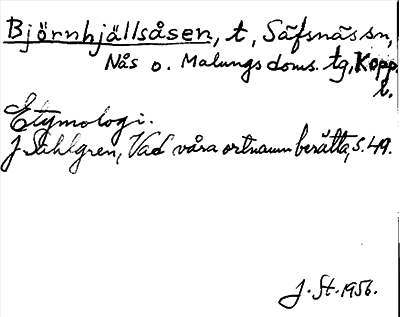 Björnhjällsåsen, t, Säfsnäs sn,
Nås o. Malungs doms. tg, Kopp.
l.
Etymologi.
J Sahlgren, Vad våra ortnamn berätta, s. 49.
J. St. 1956.